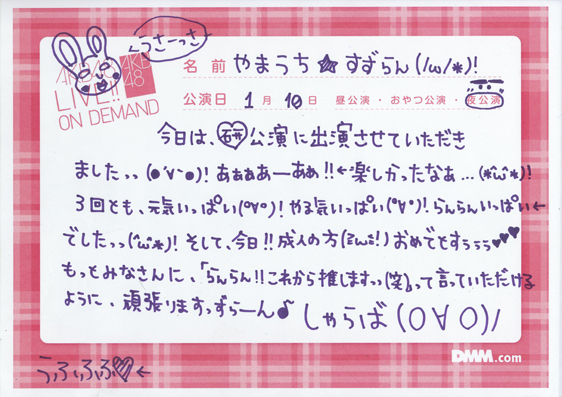 ←うさーっさ
AKB48
LIVE!!
ON DEMAND
AKB
48
名前 やまうち★すずらん(/ω/*)!
公演日 1月10日 昼公演・おやつ公演・夜公演
今日は、研公演に出演させていただき
ましたっっ(●'∀`●)!あぁぁあーあぁ!!←楽しかったなぁ…(*'ω'*)!
3回とも、元気いっぱい(°∀°)!やる気いっぱい(°∀°)!らんらんいっぱい←
でしたっっ(*'ω'*)!そして、今日!!成人の方(≧ω≦!)おめでとすぅぅぅ♥♥♥
もっとみなさんに、「らんらん!!これから推しますっっ(笑)」って言っていただける
ように、頑張りますっずらーん♪ しゃらば(O∀O)/
うふふふ♥←
DMM.com